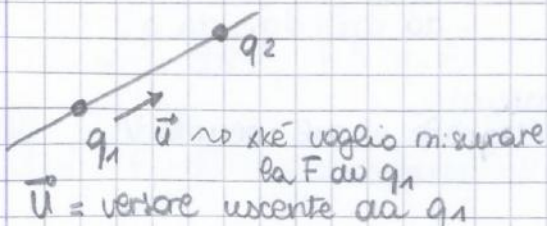 q2
q1 u⃗ ~> xké voglio misurare
la F du q1
u⃗ = versore uscente da q1